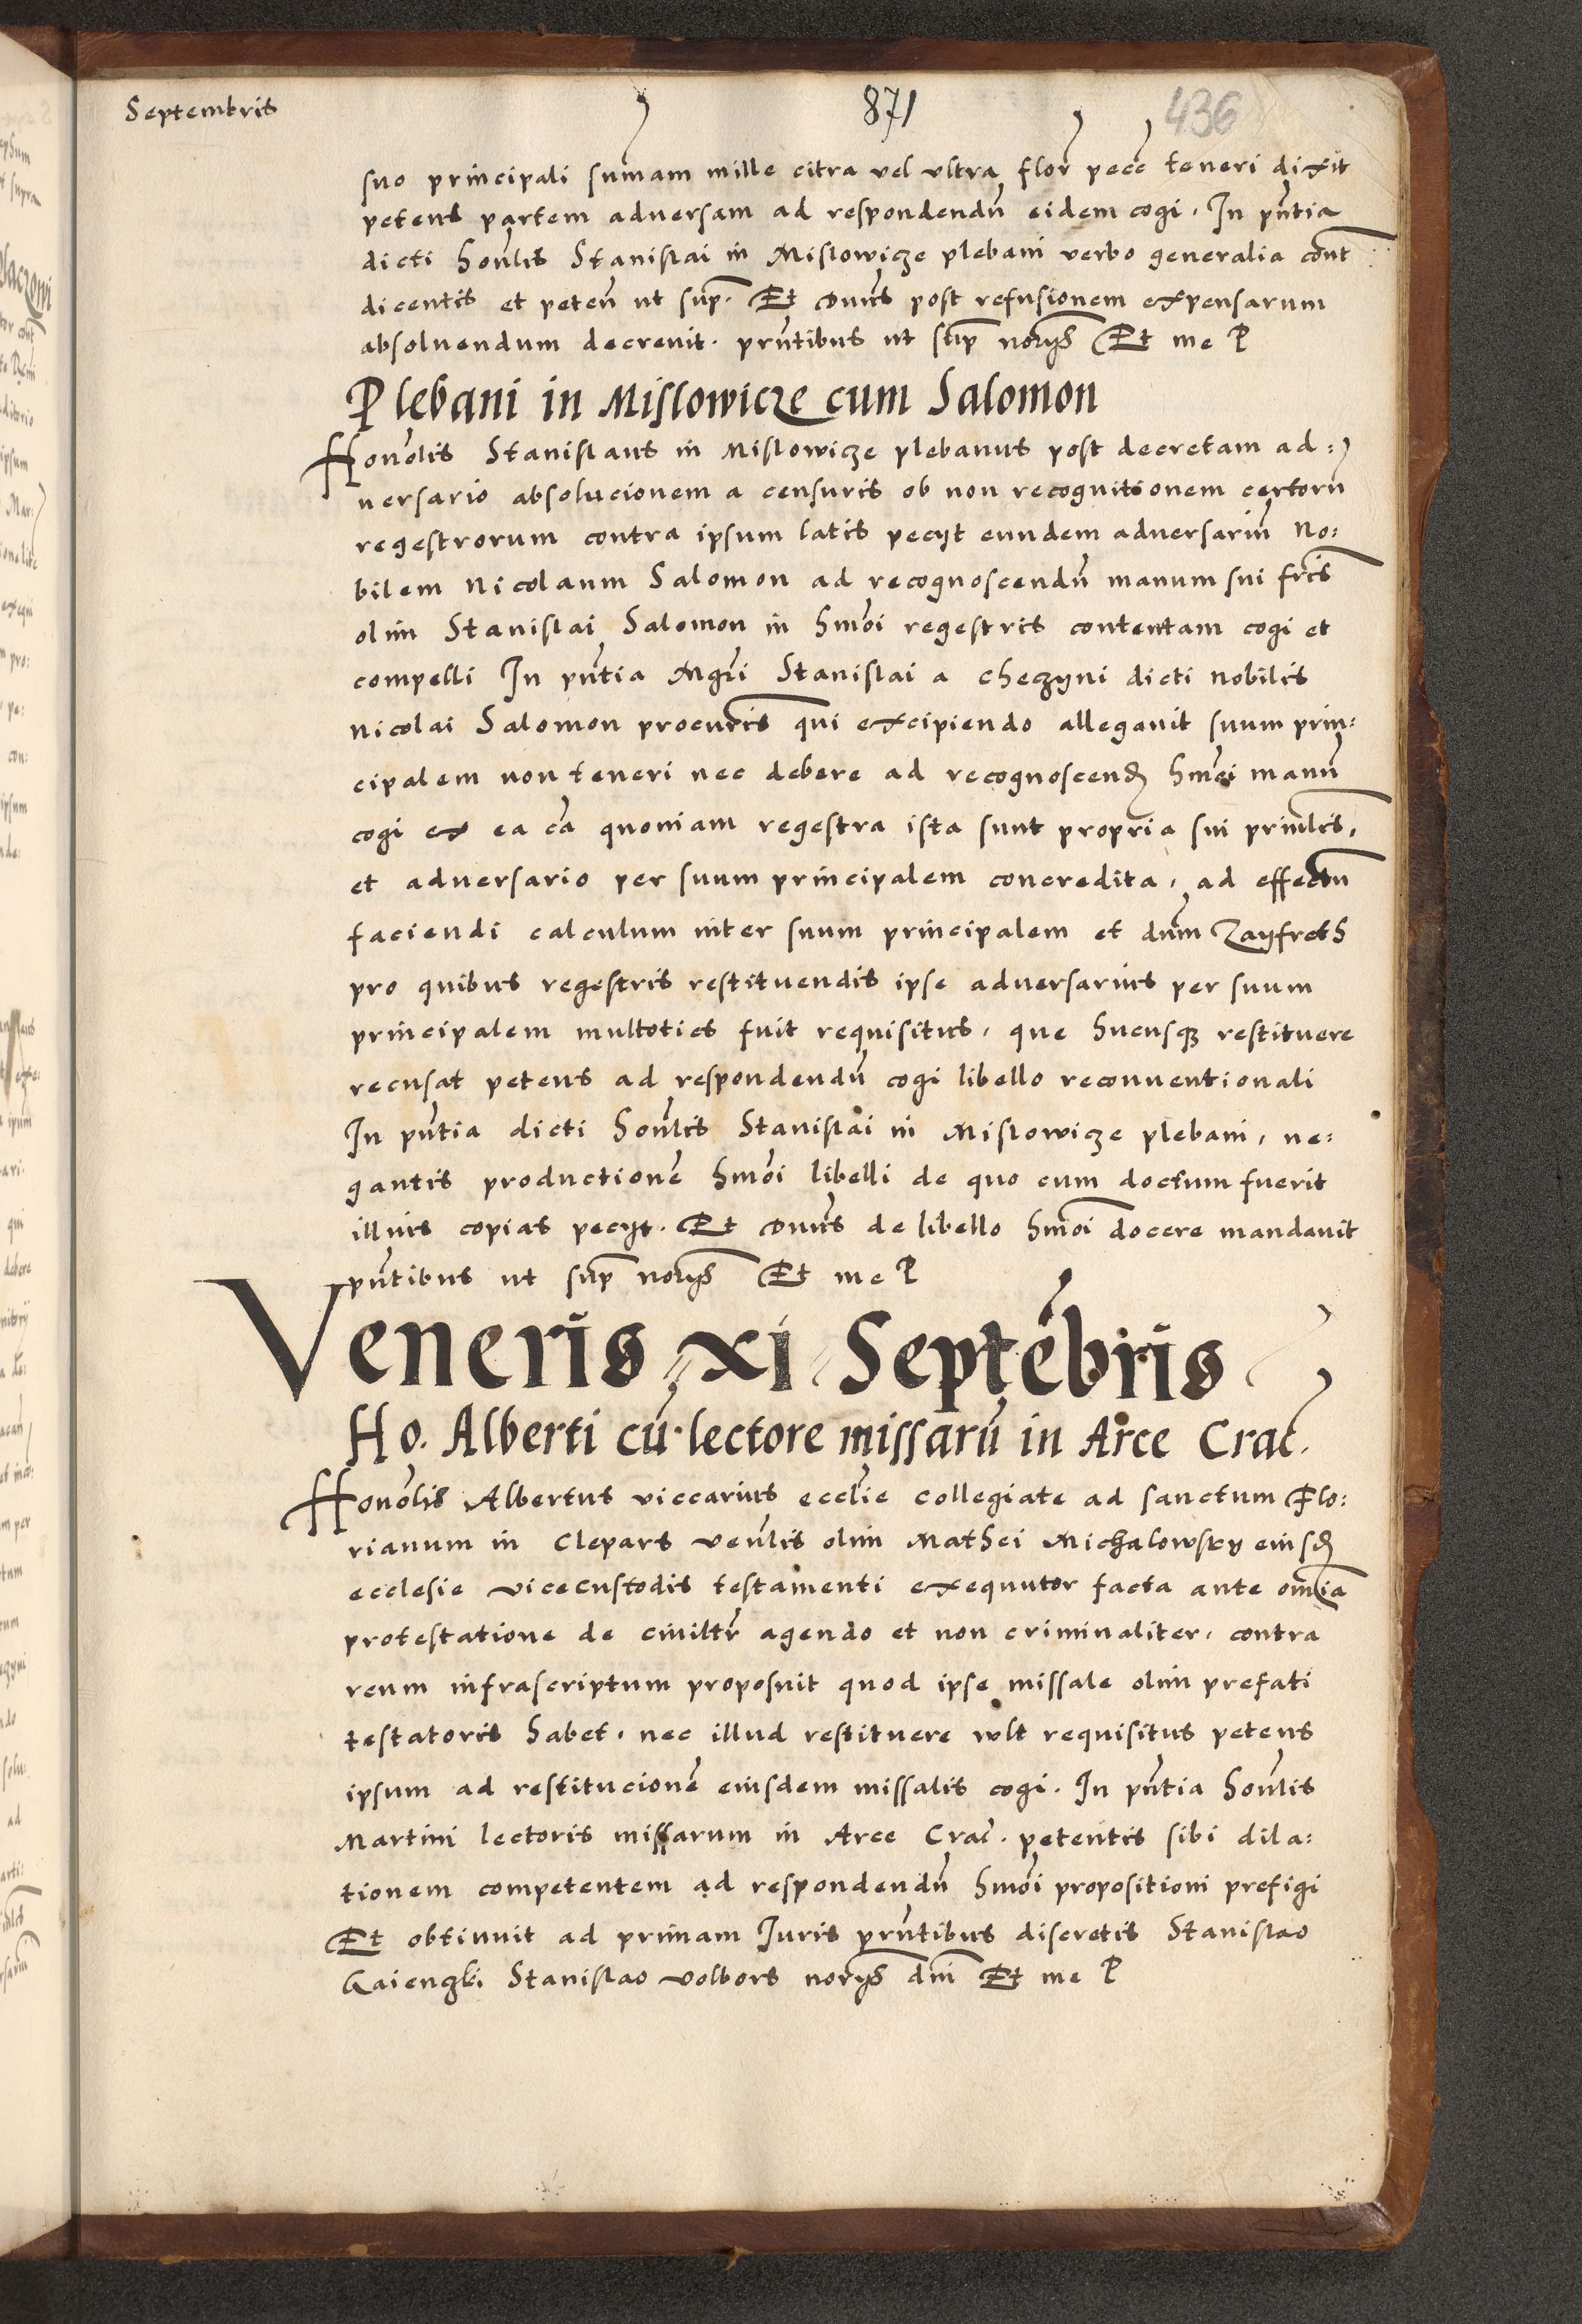 Septembris
871
436
suo principali sum̄am mille citra vel ultra flor̄ pecc̄ teneri dixit
petens partem adversam ad respondendū eidem cogi. In pn̄tia
dicti hon̄lis Stanislai in Mislowicze plebani verbo generalia cont̄
dicentis et peten̄ ut sup̄. Et Dn̄us post refusionem expensarum
absoluendum decrevit. prn̄tibus ut sup̄ norȳs Et me P
Plebani in Mislowicze cum Salomon
Honōlis Stanislaus in Mislowicze plebanus post decretam ad:
versario absolucionem a censuris ob non recognitionem certorū
regestrorum contra ipsum latis pecyt eundem adversariū No:
bilem Nicolaum Salomon ad recognoscendū manum sui frīs
olim Stanislai Salomon in hmōi regestris contentam cogi et
compelli In pn̄tia Mgr̄i Stanislai a checzyni dicti nobilis
Nicolai Salomon procurīs qui excipiendo allegavit suum prin:
cipalem non teneri nec debere ad recognoscend hmōi manū
cogi ex ea cā quoniam regestra ista sunt propria sui prinl̄is,
et adversario per suum principalem concredita, ad effectū
faciendi calculum inter suum principalem et dūm Zayfreth
pro quibus regestris restituendis ipse adversarius per suum
principalem multoties fuit requisitus, que hucusq3 restituere
recusat petens ad respondendū cogi libello reconventionali
In pn̄tia dicti hon̄lis Stanislai in Mislowicze plebani, ne:
gantis productionē hmōi libelli de quo cum doctum fuerit
illius copias pecyt. Et Dn̄us de libello hmōi docere mandavit
pn̄tibus ut sup̄ norȳs Et me P
Veneris xi Septēbris
Ho. Alberti cū lectore missarū in Arce Crac̄.
Honōlis Albertus viccarius eccl̄ie collegiate ad sanctum Flo:
rianum in Clepars ven̄lis olim Mathei Michalowsky eiusd
ecclesie vicecustodis testamenti exequutor facta ante om̄ia
protestatione de civilit̄r agendo et non criminaliter, contra
reum infrascriptum proposuit quod ipse missale olim prefati
testatoris habet, nec illud restituere vult requisitus petens
ipsum ad restitucionē eiusdem missalis cogi. In pn̄tia hon̄lis
Martini lectoris missarum in Arce Crac̄. petentis sibi dila:
tionem competentem ad respondendū hmōi propositioni prefigi
Et obtinuit ad primam Juris prn̄tibus discretis Stanislao
Gaienczki Stanislao Volbors norȳs dn̄i Et me P